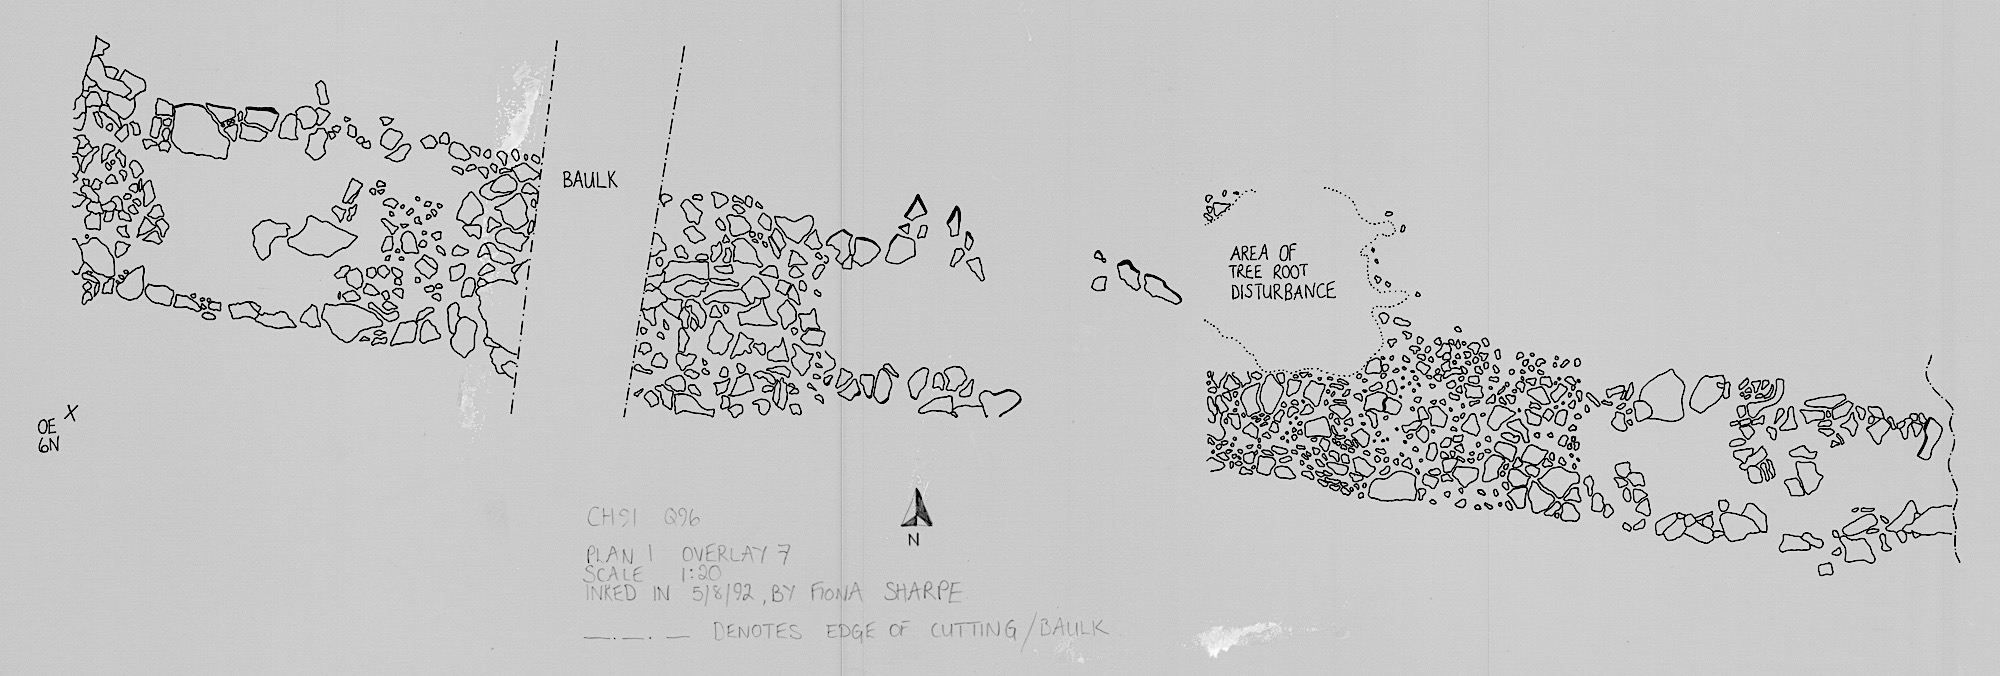 BAULK
AREA OF
TREE ROOT
DISTURBANCE
X
OE
6N
N
CH91 Q96
PLAN 1 OVERLAY 7
SCALE 1:20
INKED IN 5/8/92, BY FIONA SHARPE
DENOTES EDGE OF CUTTING/BAULK